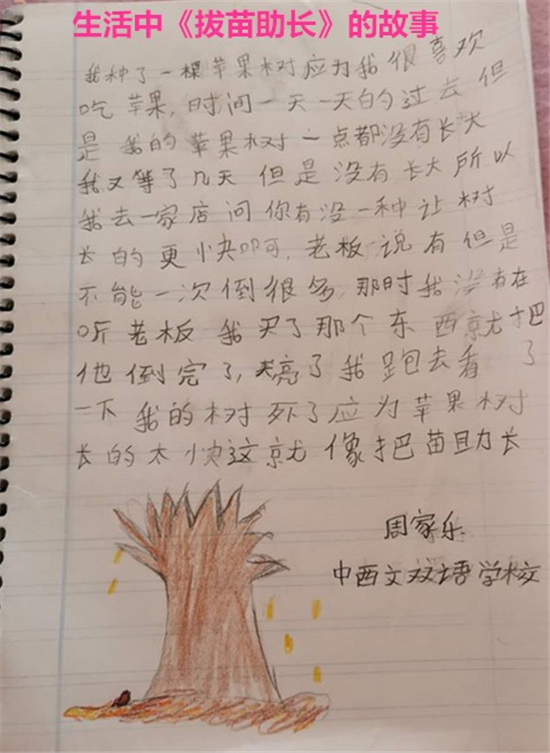 生活中《拔苗助长》的故事
我种了一棵苹果树应为我很喜欢
吃苹果,时间一天一天的过去但
是我的苹果树一点都没有长大
我又等了几天但是没有长大所以
我去一家店问你有没一种让树
长的更快吗可,老板说有但是
不能一次倒很多,那时我没有在
听老板我买了那个东西就把
他倒完了,天亮了我跑去看了
一下我的树死了应为苹果树
长的太快这就像把苗助长
周家乐
中西文双语学校